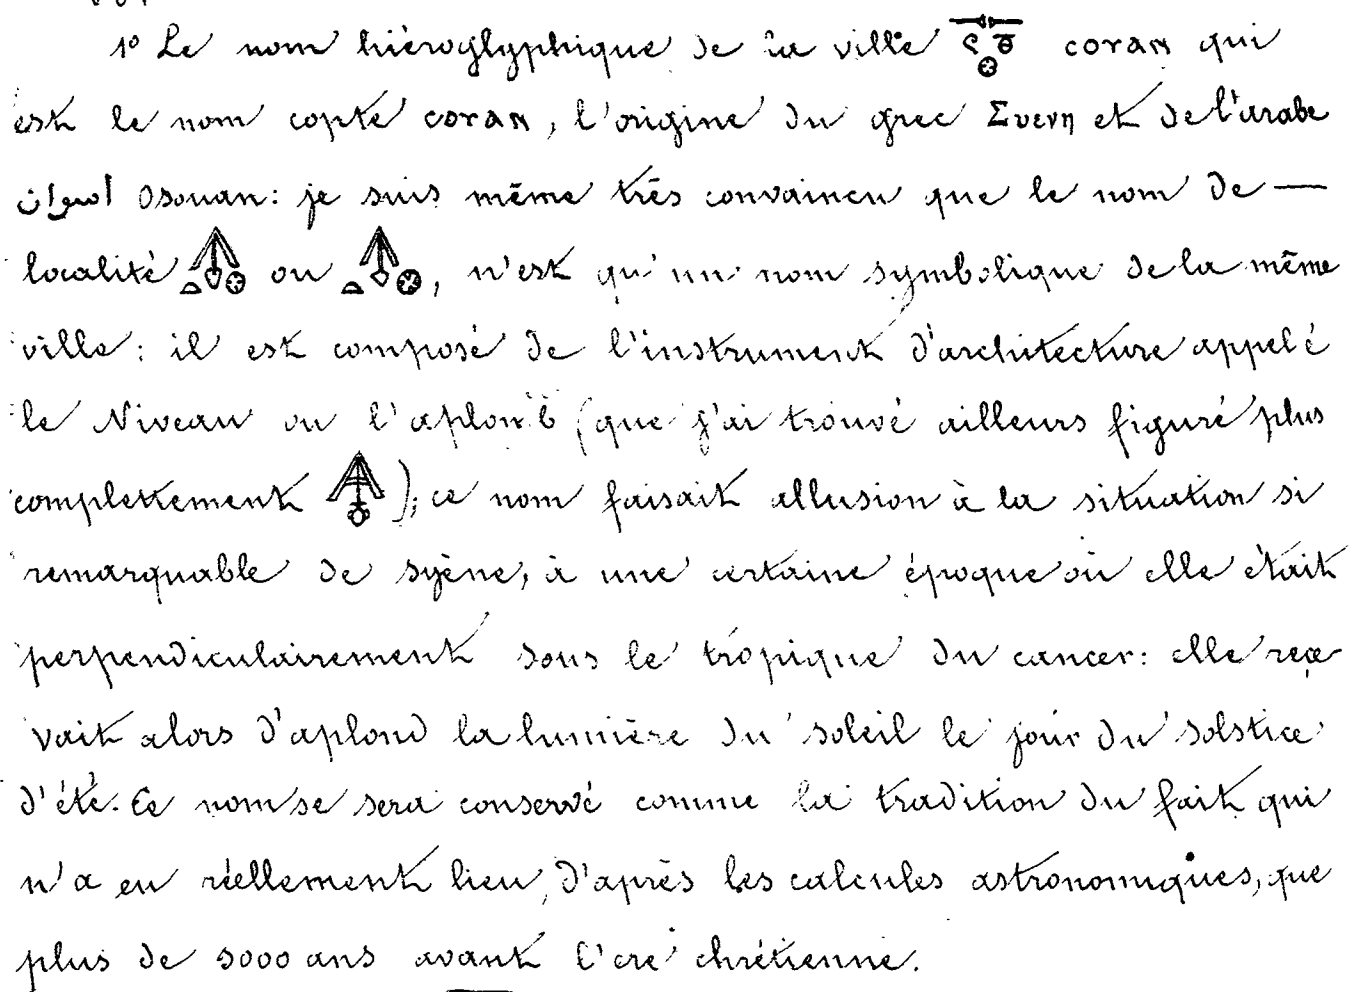 1º Le nom hiéroglyphique de la ville ϹΟΥΑΝ qui
est le nom copte ϹΟΥΑΝ, l'origine du grec Συενη et de l'arabe
اسوان Osouan: je suis même très convaincu que le nom de —
localité ou , n'est qu'un nom symbolique de la même
ville: il est composé de l'instrument d'architecture appelé
le Niveau ou l'aplomb (que j'ai trouvé ailleurs figuré plus
complettement ); ce nom faisait allusion à la situation si
remarquable de syène, à une certaine époque où elle était
perpendiculairement sous le tropique du cancer: elle rece
vait alors d'aplond la lumière du soleil le jour du solstice
d'été. Ce nom se sera conservé comme la tradition du fait qui
n'a eu réellement lieu, d'après les calcules astronomiques, que
plus de 5000 ans avant l'ere chrétienne.